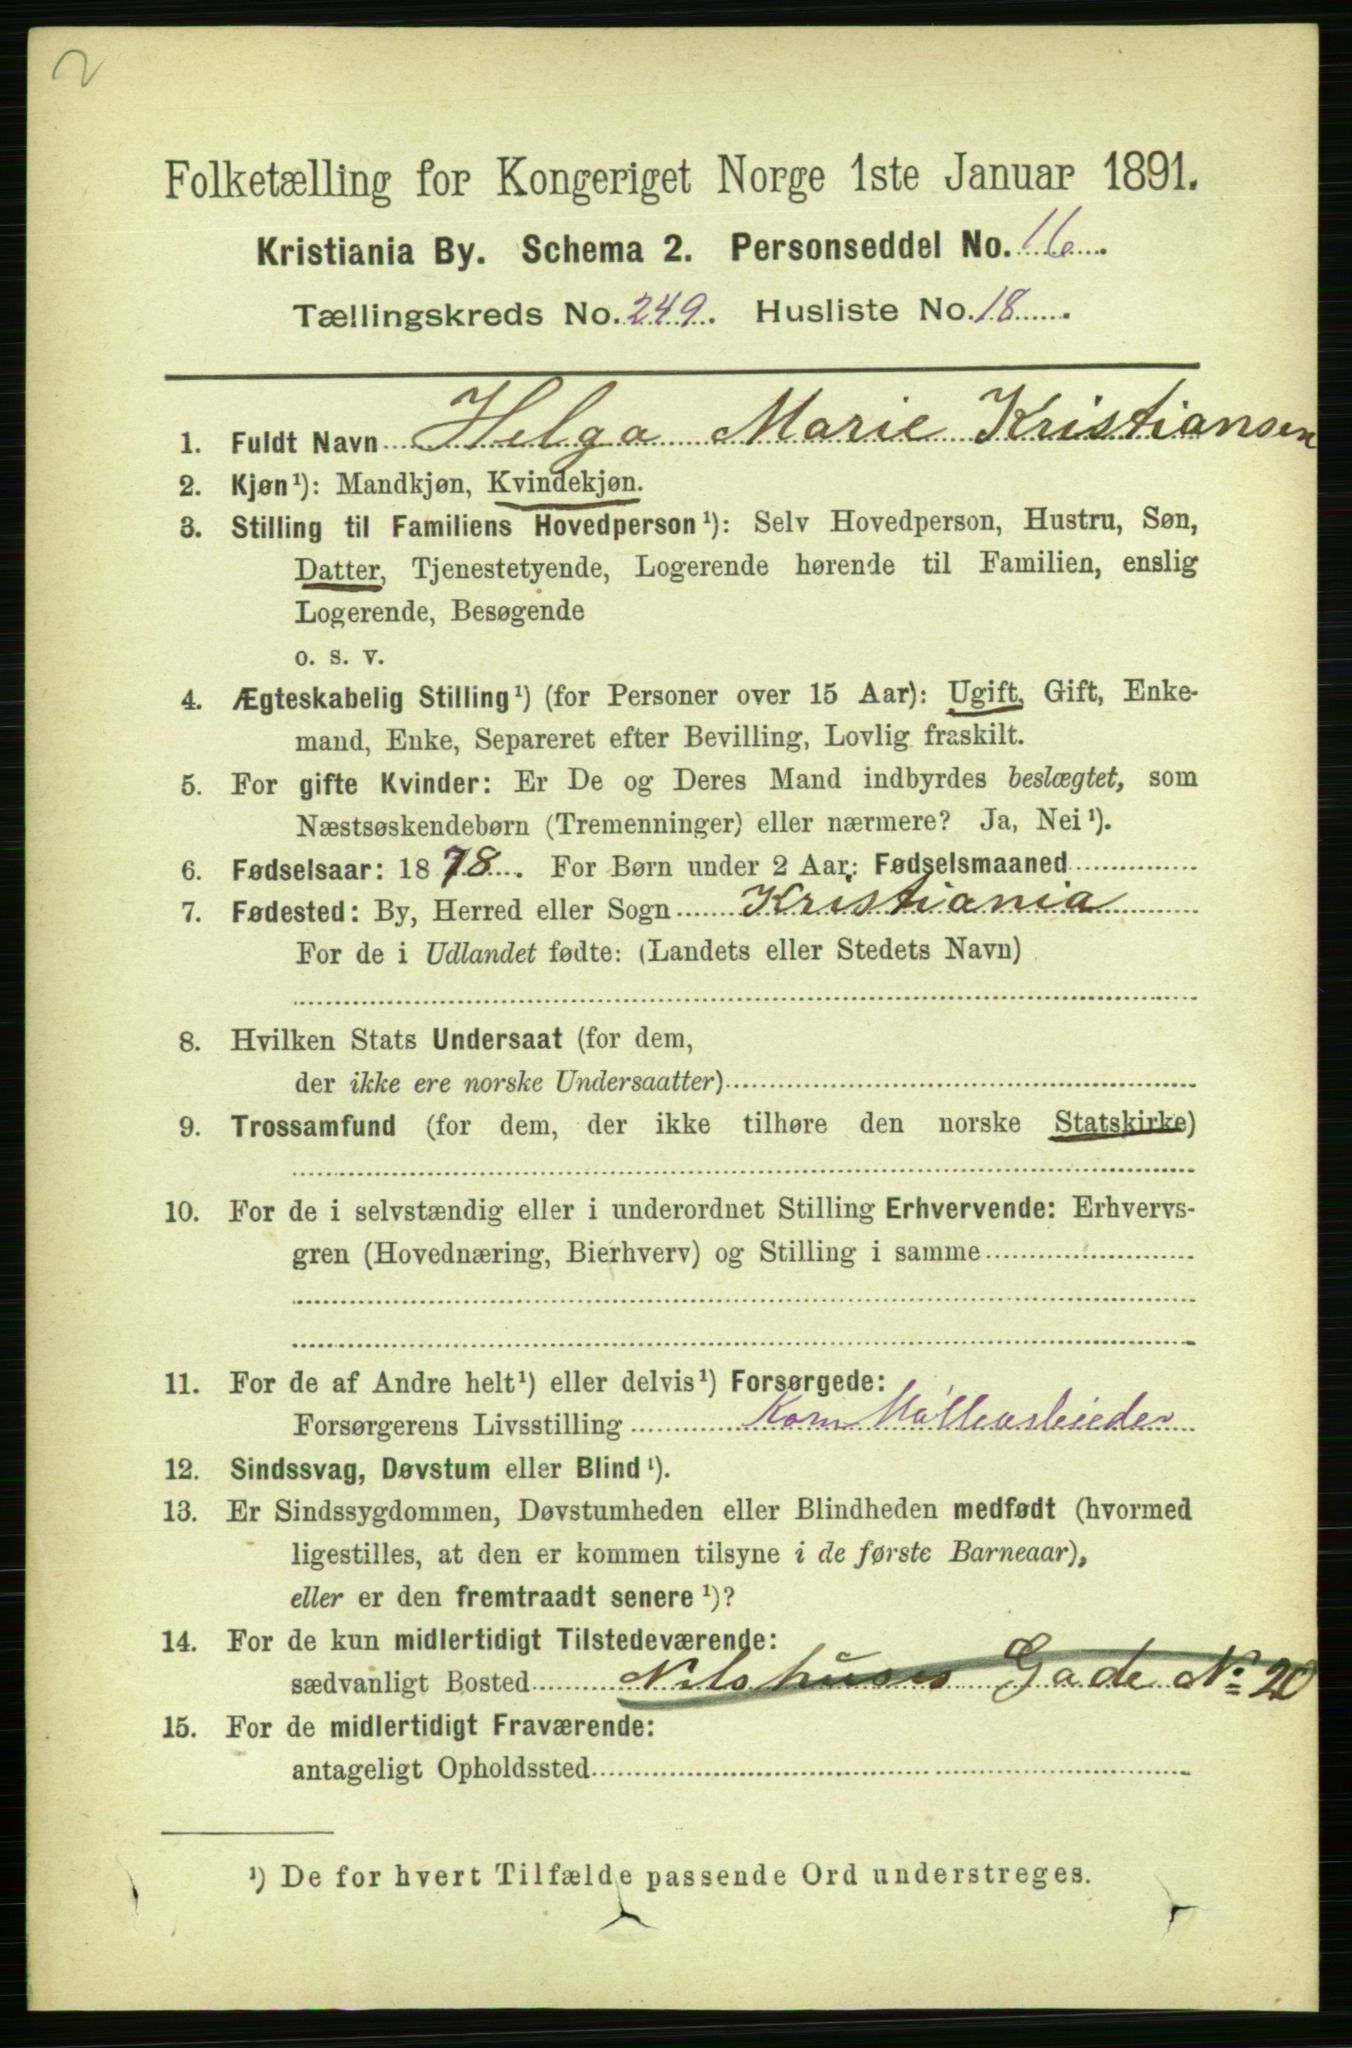 2
Folketælling for Kongeriget Norge 1ste Januar 1891.
Kristiania By. Schema 2. Personseddel No. 16.
Tællingskreds No. 249. Husliste No. 18.
1. Fuldt Navn Helga Marie Kristiansen
2. Kjøn¹): Mandkjøn, Kvindekjøn.
3. Stilling til Familiens Hovedperson¹): Selv Hovedperson, Hustru, Søn,
Datter, Tjenestetyende, Logerende hørende til Familien, enslig
Logerende, Besøgende
o. s. v.
4. Ægteskabelig Stilling¹) (for Personer over 15 Aar): Ugift, Gift, Enke-
mand, Enke, Separeret efter Bevilling, Lovlig fraskilt.
5. For gifte Kvinder: Er De og Deres Mand indbyrdes beslægtet, som
Næstsøskendebørn (Tremenninger) eller nærmere? Ja, Nei¹).
6. Fødselsaar: 1878. For Børn under 2 Aar: Fødselsmaaned
7. Fødested: By, Herred eller Sogn Kristiania
For de i Udlandet fødte: (Landets eller Stedets Navn)
8. Hvilken Stats Undersaat (for dem,
der ikke ere norske Undersaatter)
9. Trossamfund (for dem, der ikke tilhøre den norske Statskirke)
10. For de i selvstændig eller i underordnet Stilling Erhvervende: Erhvervs-
gren (Hovednæring, Bierhverv) og Stilling i samme
11. For de af Andre helt¹) eller delvis¹) Forsørgede:
Forsørgerens Livsstilling Korn Møllearbeider
12. Sindssvag, Døvstum eller Blind¹).
13. Er Sindssygdommen, Døvstumheden eller Blindheden medfødt (hvormed
ligestilles, at den er kommen tilsyne i de første Barneaar),
eller er den fremtraadt senere¹)?
14. For de kun midlertidigt Tilstedeværende:
sædvanligt Bosted Nilshuses Gade No 20
15. For de midlertidigt Fraværende:
antageligt Opholdssted
¹) De for hvert Tilfælde passende Ord understreges.